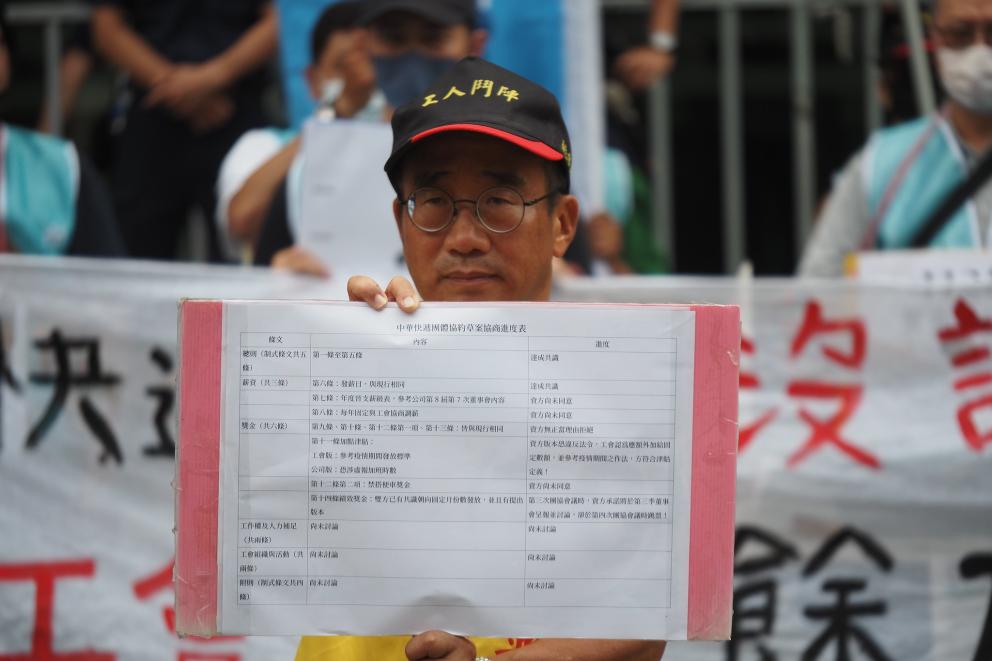 工人鬥陣
中華快遞團體協約草案協商進度表
條文 內容 進度
總則（制式條文共五條） 第一條至第五條 達成共識
薪資（共三條） 第六條：發薪日，與現行相同 達成共識
第七條：年度晉支薪級表，參考公司第8屆第7次董事會內容 資方尚未同意
第八條：每年固定與工會協商調薪 資方尚未同意
獎金（共六條） 第九條、第十條、第十二條第一項、第十三條：皆與現行相同 資方無正當理由拒絕
第十一條加點津貼：
工會版：參考疫情期間發放標準
公司版：恐涉虛報加班時數
資方版本恐違反法令，工會認為應額外加給固
定數額，並參考疫情期間之作法，方符合津貼
定義！
第十二條第二項：禁搭便車獎金 資方尚未同意
第十四條績效獎金：雙方已有共識朝向固定月份數發放，並且有提出
版本
第三次團協會議時，資方承諾將於第三季董事
會呈報並討論，卻於第四次團協會議時跳票！
工作權及人力補足（共兩條） 尚未討論 尚未討論
工會組織與活動（共兩條） 尚未討論 尚未討論
附則（制式條文共四條） 尚未討論 尚未討論
快
沒
工會
餘